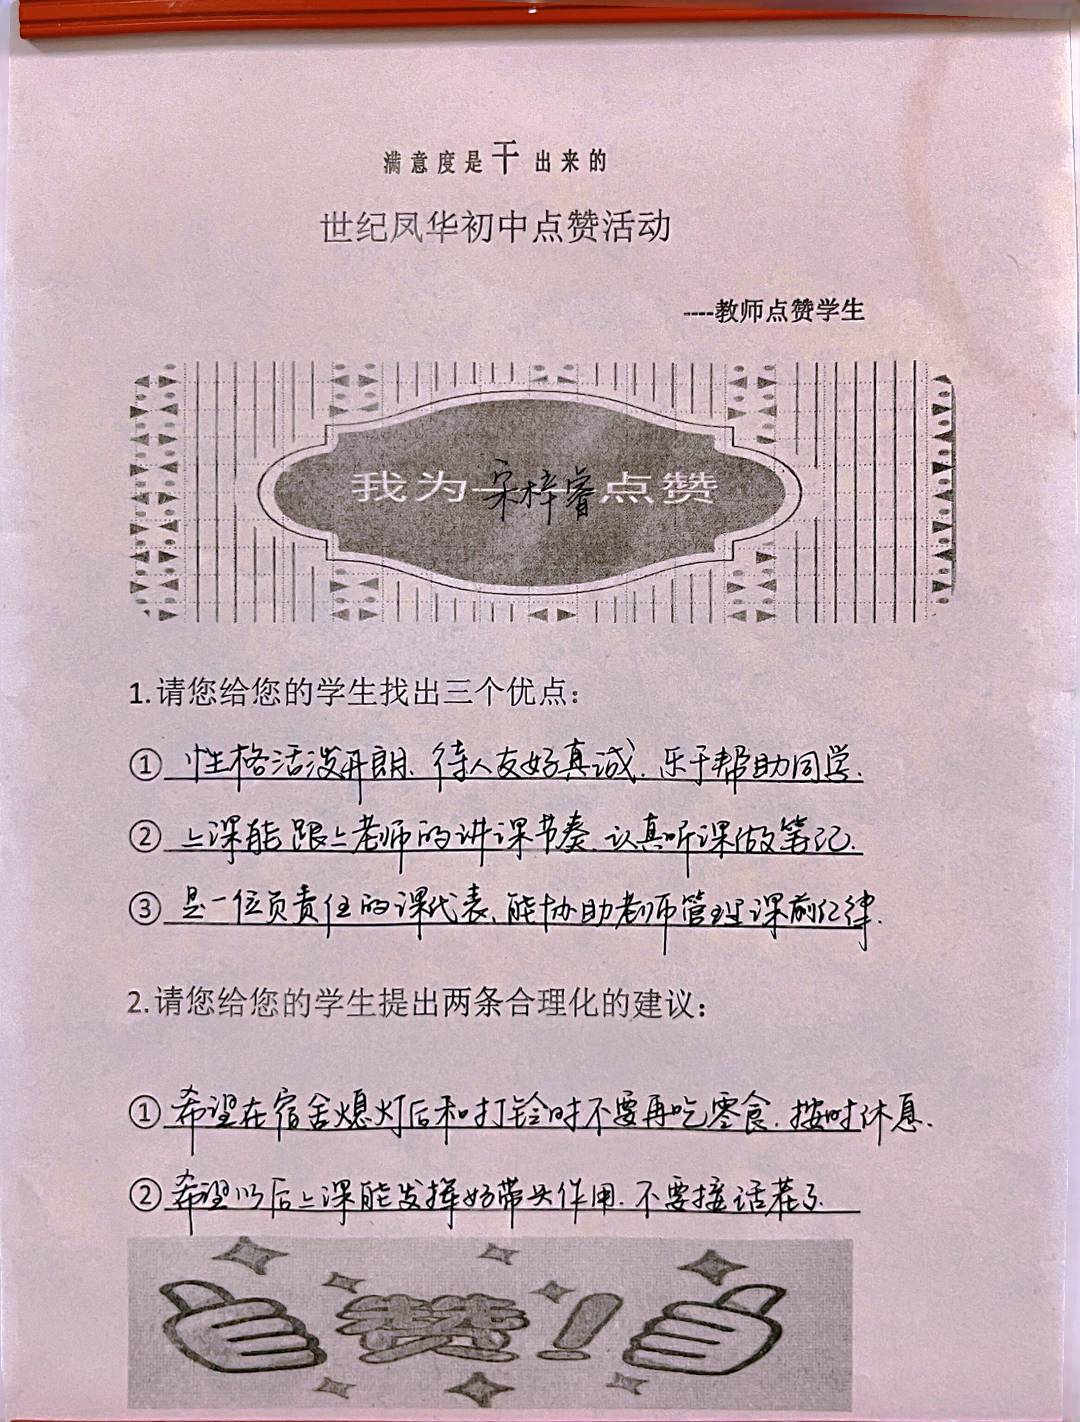 满意度是干出来的
世纪凤华初中点赞活动
----教师点赞学生
我为宋梓睿点赞
1.请您给您的学生找出三个优点：
① 性格活泼开朗、待人友好真诚、乐于帮助同学.
② 上课能跟上老师的讲课节奏、认真听课做笔记.
③ 是一位负责任的课代表、能协助老师管理课前纪律.
2.请您给您的学生提出两条合理化的建议：
① 希望在宿舍熄灯后和打铃时不要再吃零食、按时休息.
② 希望以后上课能发挥好带头作用、不要接话茬了.
赞！